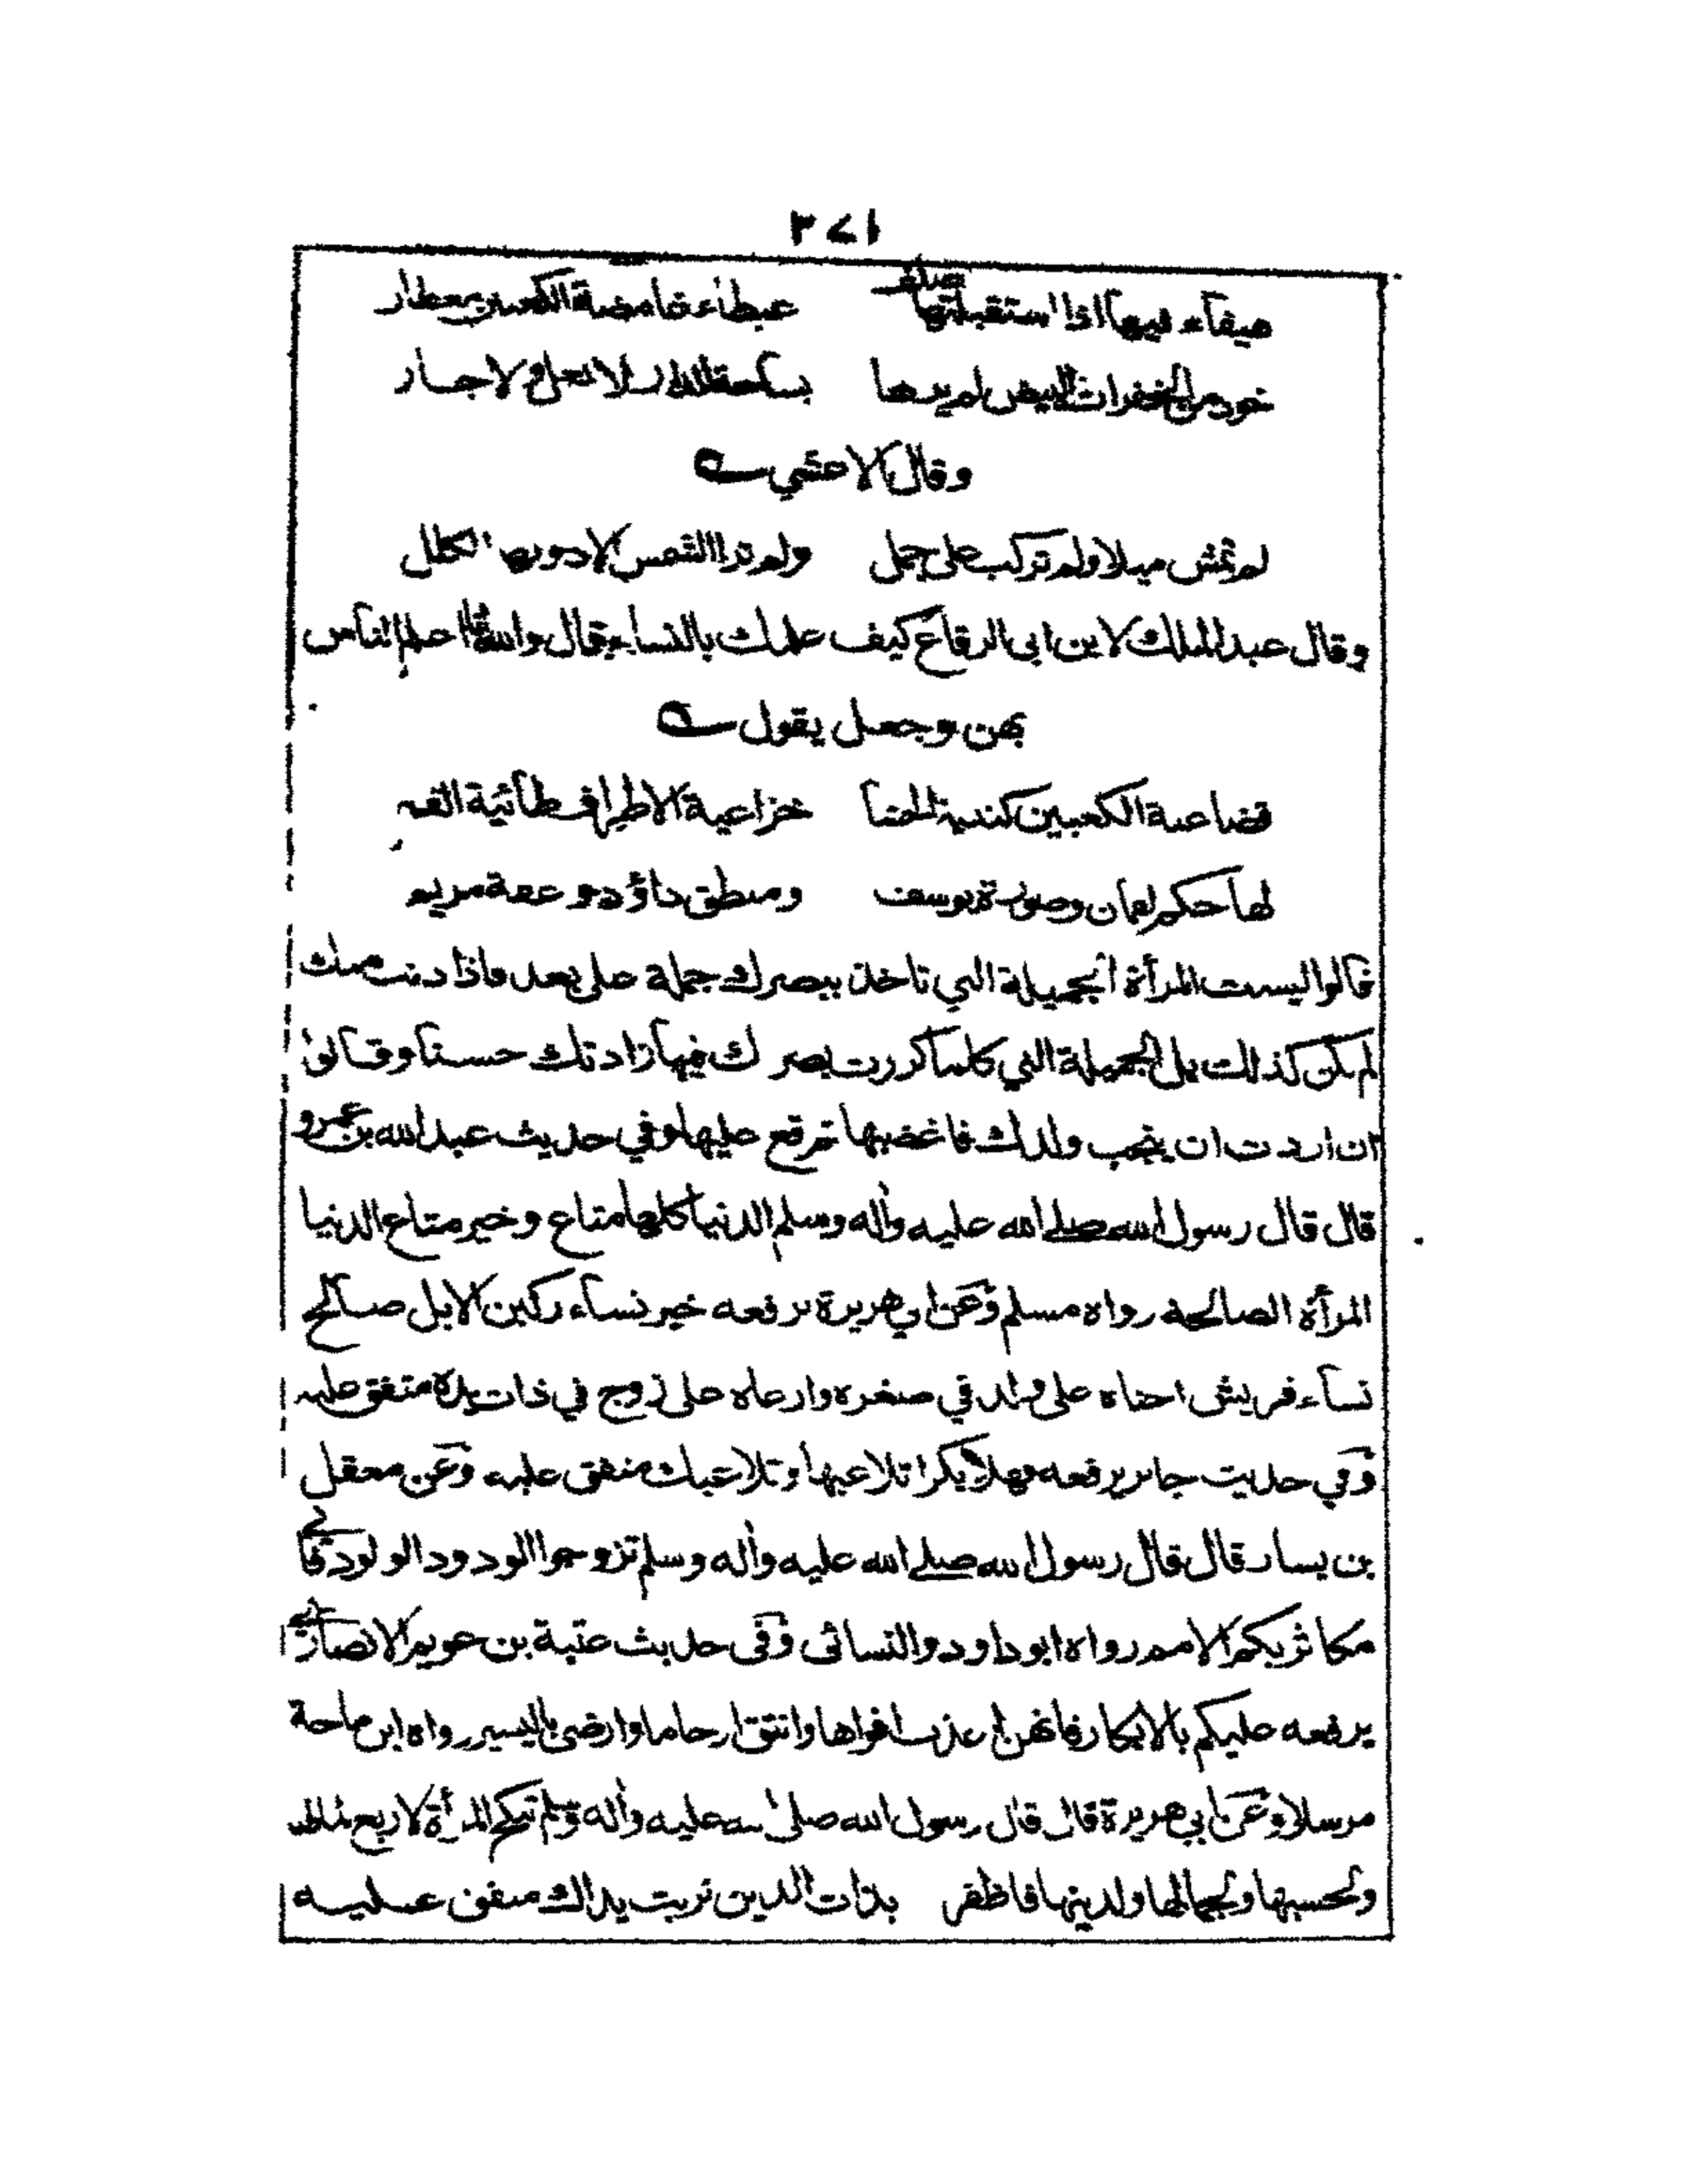 ٣٧١
هيفآء فيهآ اذا استقبلتها صلف عيطاء غامضة الكعبين معطار
خود من الخفرات البيض لم يرها بساحة الدار لا بعل ولا جار
وقال الاعشي
لم تمش ميلا ولم تركب على جمل ولم تر الشمس الا دونها الكلل
وقال عبدالملك لابن ابى الرقاع كيف علمك بالنساء قال والله انا اعلم الناس
بهن وجعل يقول
قضاعية الكعبين كندية الحشا خزاعية الاطراف طآئية الفم
لها حكم لقمان وصورة يوسف ومنطق داؤد وعفة مريم
قالوا ليست المرأة الجميلة التي تاخذ ببصرك جملة على بعد فاذا دنت منك
لم تكن كذلك بل الجميلة التي كلما كررت بصرك فيها زادتك حسنا وقالوا
ان اردت ان ينجب ولدك فاغضبها ثم قع عليها وفي حديث عبدالله بن عمرو
قال قال رسول الله صلى الله عليه وأله وسلم الدنيا كلها متاع وخير متاع الدنيا
المرأة الصالحة رواه مسلم وعن ابي هريرة يرفعه خير نسآء ركبن الابل صالح
نسآء قريش احناه على ولد في صغره وارعاه على زوج في ذات يده متفق عليه
وفي حديث جابر يرفعه فهلا بكرا تلاعبها وتلاعبك متفق عليه وعن معقل
بن يسار قال قال رسول الله صلى الله عليه وأله وسلم تزوجوا الودود الولود فاني
مكاثر بكم الامم رواه ابو داود والنسائى وفى حديث عتبة بن عويم الانصاري
يرفعه عليكم بالابكار فانهن اعذب افواها وانتق ارحاما وارضى باليسير رواه ابن ماجة
مرسلا وعن ابي هريرة قال قال رسول الله صلى الله عليه وأله وسلم تنكح المرأة لاربع لمالها
ولحسبها ولجمالها ولدينها فاظفر بذات الدين تربت يداك متفق عليه